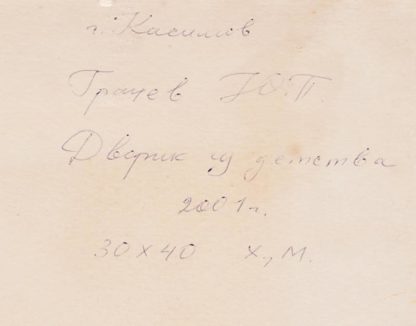 г. Касимов
Грачев Ю.П.
Дворик из детства
2001 г.
30 х 40 х., м.